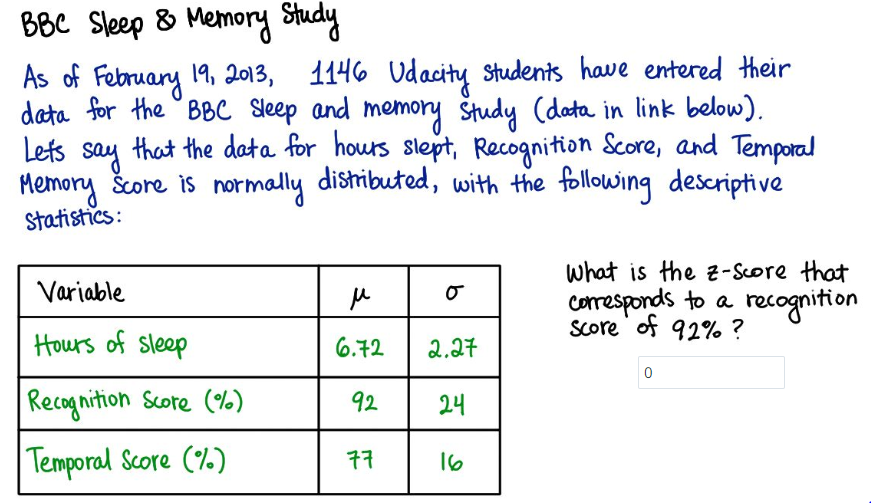 BBC Sleep & Memory Study
As of February 19, 2013, 1146 Udacity students have entered their
data for the BBC Sleep and memory study (data in link below).
Lets say that the data for hours slept, Recognition Score, and Temporal
Memory Score is normally distributed, with the following descriptive
statistics:
Variable μ σ
Hours of sleep 6.72 2.27
Recognition Score (%) 92 24
Temporal Score (%) 77 16
What is the z-score that
corresponds to a recognition
score of 92% ?
0